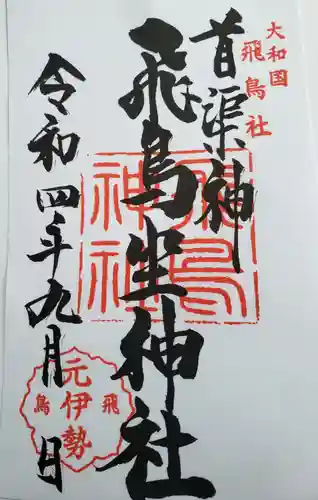 大和国
飛鳥社
首渠神
飛鳥坐神社
飛鳥神社
令和四年九月 日
元伊勢
飛
鳥